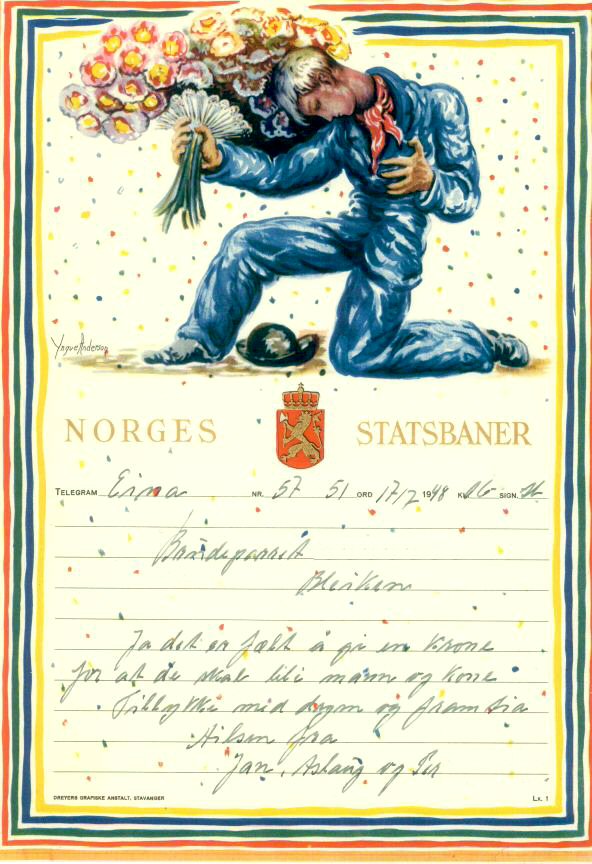 Yngve Anderson
NORGES STATSBANER
TELEGRAM Eina NR. 57 51 ORD 17/2 1948 KL. 16 SIGN.
Brudeparret
Bleiken
Ja det er fælt å gi en krone
for at de skal bli mann og kone
Tillykke med dagen og framtia
Hilsen fra
Jan, Aslaug og Per
DREYERS GRAFISKE ANSTALT, STAVANGER
LX. 1